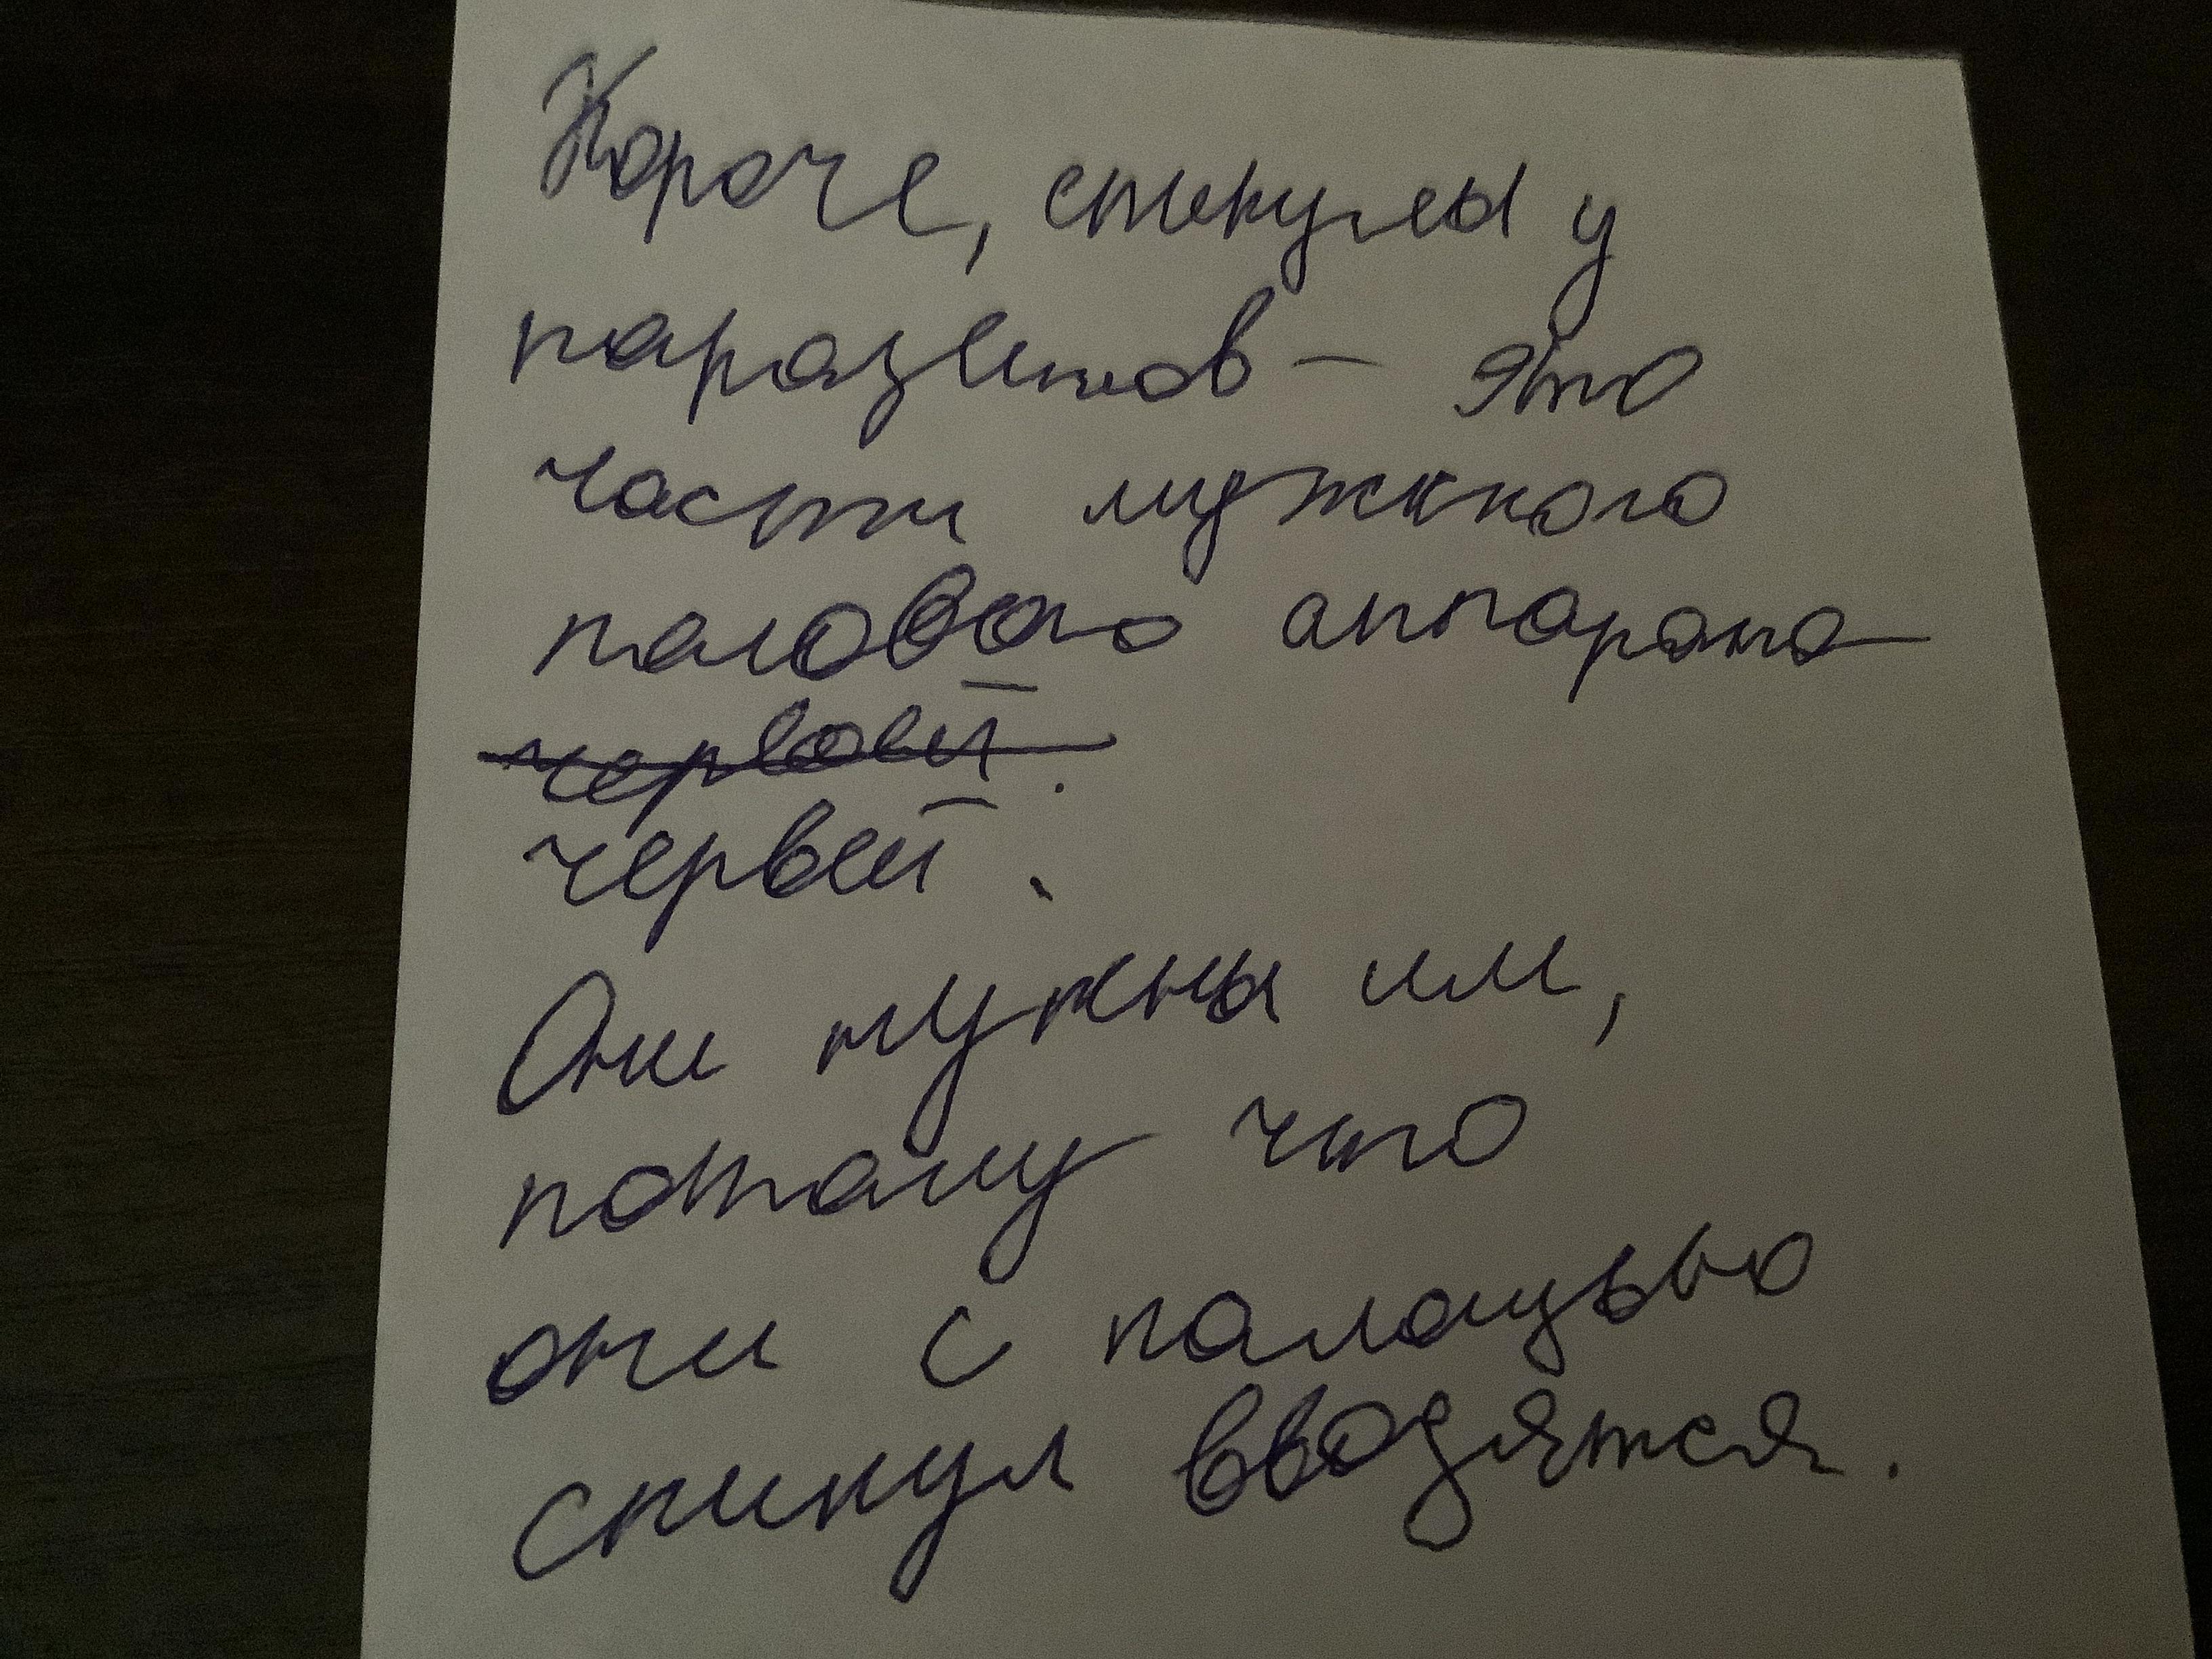 Короче, спикулы у
паразитов — это
части мужского
полового аппарата
червей.
червей.
Они нужны им,
потому что
они с помощью
спикул вводятся.